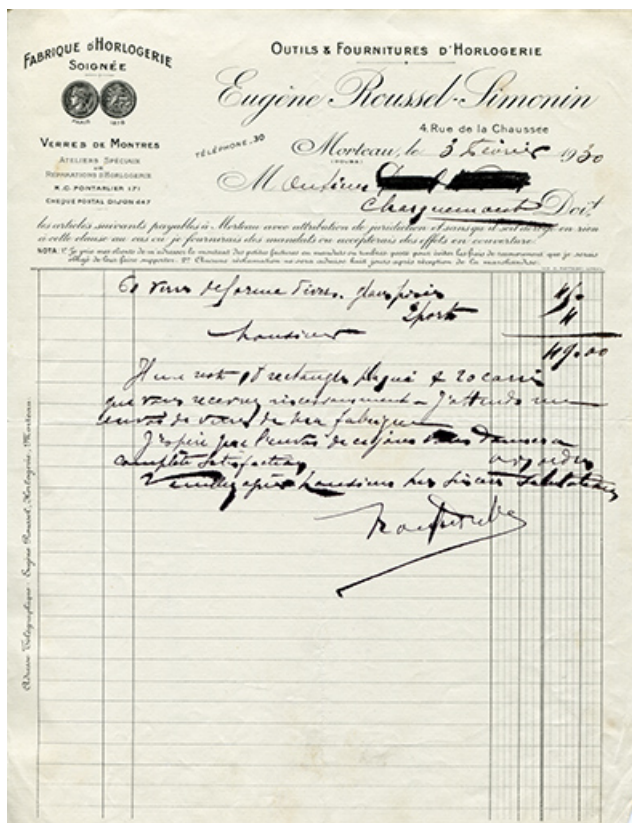 FABRIQUE D'HORLOGERIE
SOIGNÉE
PARIS 1878
VERRES DE MONTRES
ATELIERS SPÉCIAUX
DE
RÉPARATIONS D'HORLOGERIE
R.C. PONTARLIER 171
CHEQUE POSTAL DIJON 447
OUTILS & FOURNITURES D'HORLOGERIE
Eugène Roussel-Simonin
4, Rue de la Chaussée
TÉLÉPHONE - 30
Morteau, le 3 Février 1930
(DOUBS)
Monsieur
Charquemont Doit
les articles suivants payables à Morteau avec attribution de juridiction et sans qu'il soit dérogé en rien
à cette clause au cas où je fournirais des mandats ou accepterais des effets en couverture.
NOTA: 1º Je prie mes clients de m'adresser le montant des petites factures en mandats ou timbres poste pour éviter les frais de recouvrement que je serais
obligé de leur faire supporter. 2º Aucune réclamation ne sera admise huit jours après réception de la marchandise.
verres de forme divers
port
Monsieur
49.00
Il me reste rectangles 20 carrés
que vous recevrez incessamment J'attends un
envoi de verres de ma fabrique
J'espère que l'envoi de ce jour vous donnera
complète satisfaction
Monsieur mes sincères salutations
Adresse Télégraphique: Eugène Roussel, Horlogerie, Morteau.